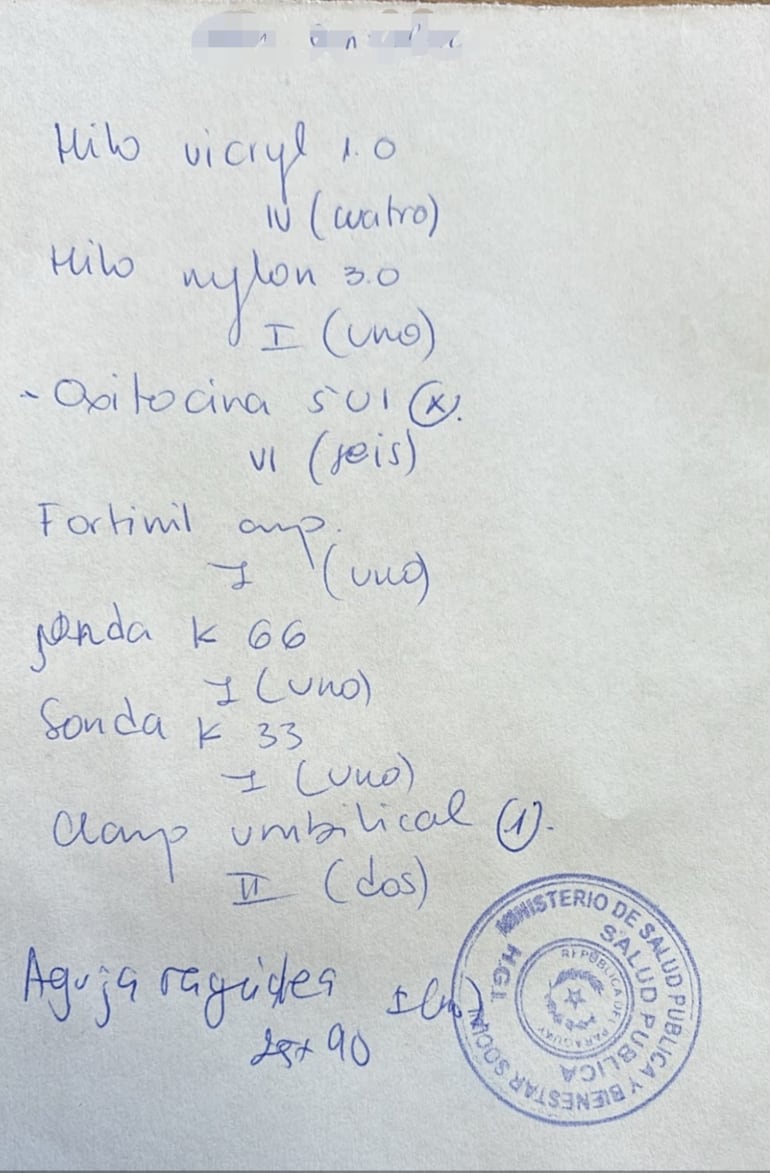 Hilo vicryl 1.0
IV (cuatro)
Hilo nylon 3.0
I (uno)
- Oxitocina 5 UI (x).
VI (seis)
Fortinil amp.
I (uno)
Sonda K 66
I (uno)
Sonda K 33
I (uno)
Clamp umbilical (1).
II (dos)
Aguja raquidea I (uno)
25x90
MINISTERIO DE SALUD PUBLICA Y BIENESTAR SOCIAL
SALUD PUBLICA
H.G.T
REPUBLICA DEL PARAGUAY